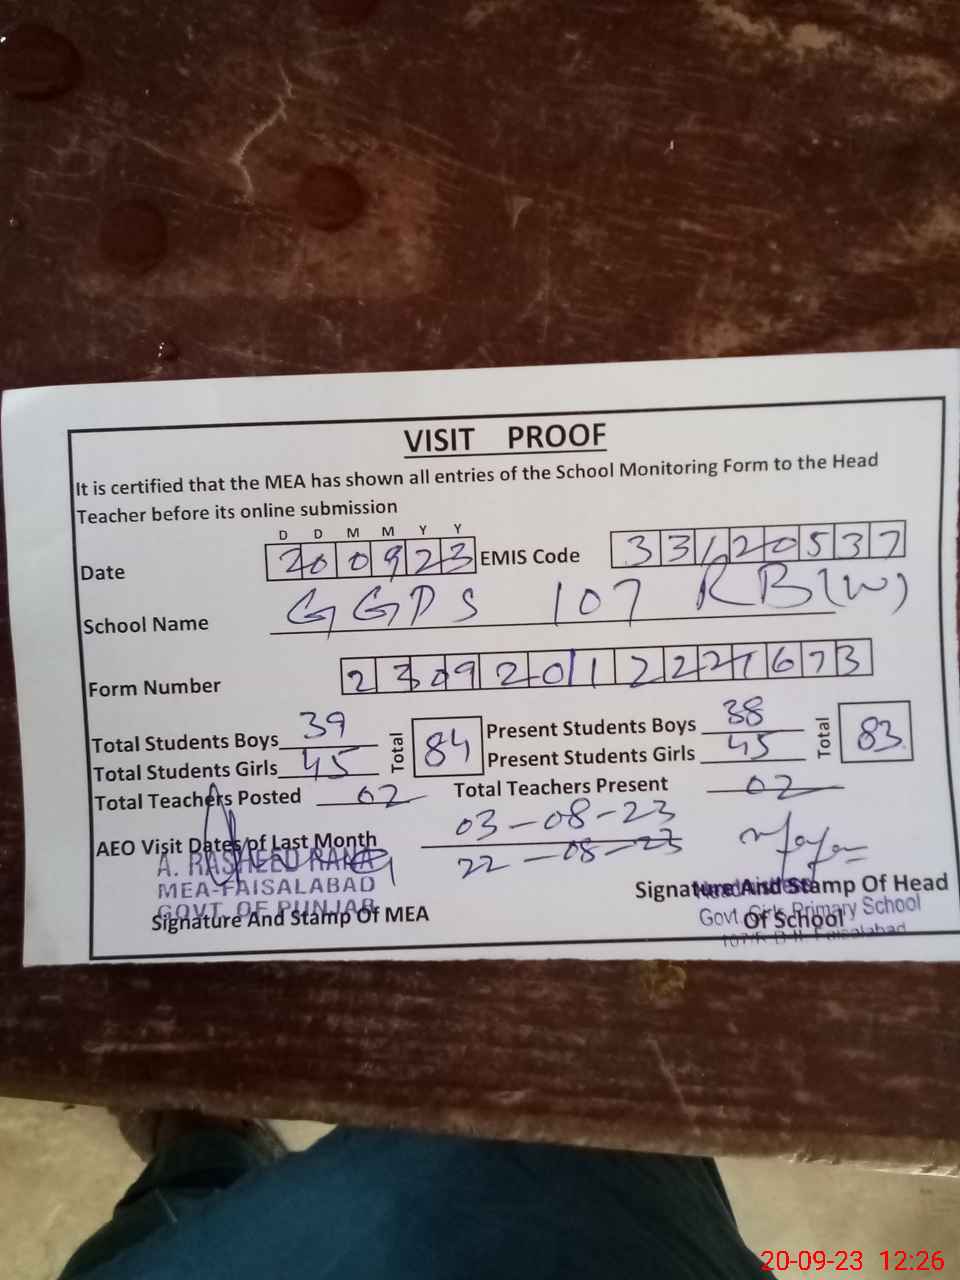 VISIT PROOF
It is certified that the MEA has shown all entries of the School Monitoring Form to the Head
Teacher before its online submission
D D M M Y Y
Date 200923 EMIS Code 33120537
School Name GGPS 107 RB(W)
Form Number
Total Students Boys 39 Total 84 Present Students Boys 38 Total 83
Total Students Girls 45 Present Students Girls 45
Total Teachers Posted 02 Total Teachers Present 02
AEO Visit Dates of Last Month 03-08-23
22-08-23
A. RASHEED RANA
MEA-FAISALABAD
GOVT. OF PUNJAB
Signature And Stamp Of MEA
Signature And Stamp Of Head
Of School
Govt Girls Primary School
20-09-23 12:26